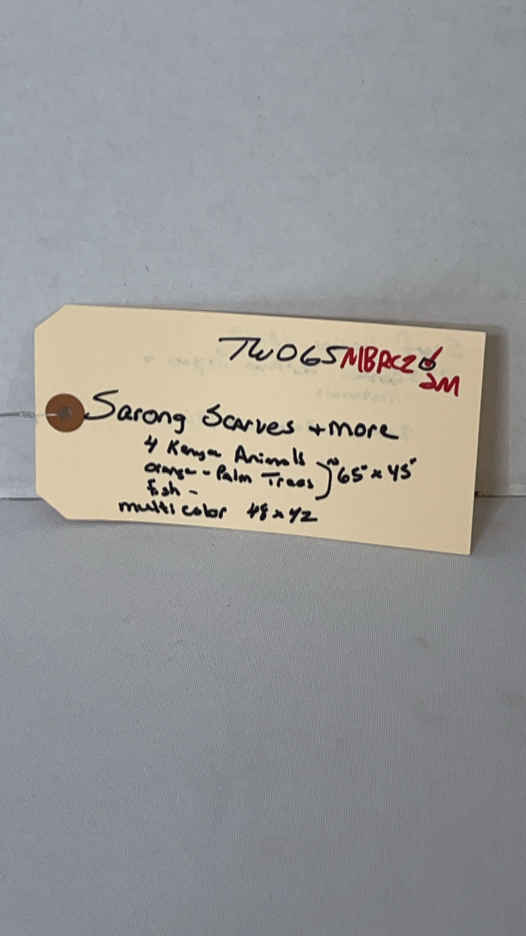 TW065 MBRC26
2M
Sarong Scarves + more
4 Kenya Animals
orange - Palm Trees ~65" x 45"
fish -
multi color 48 x 42